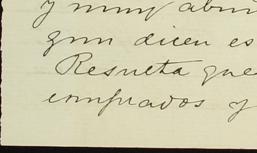 y muy abur
gun dicen es
Resuelta que
comprados y